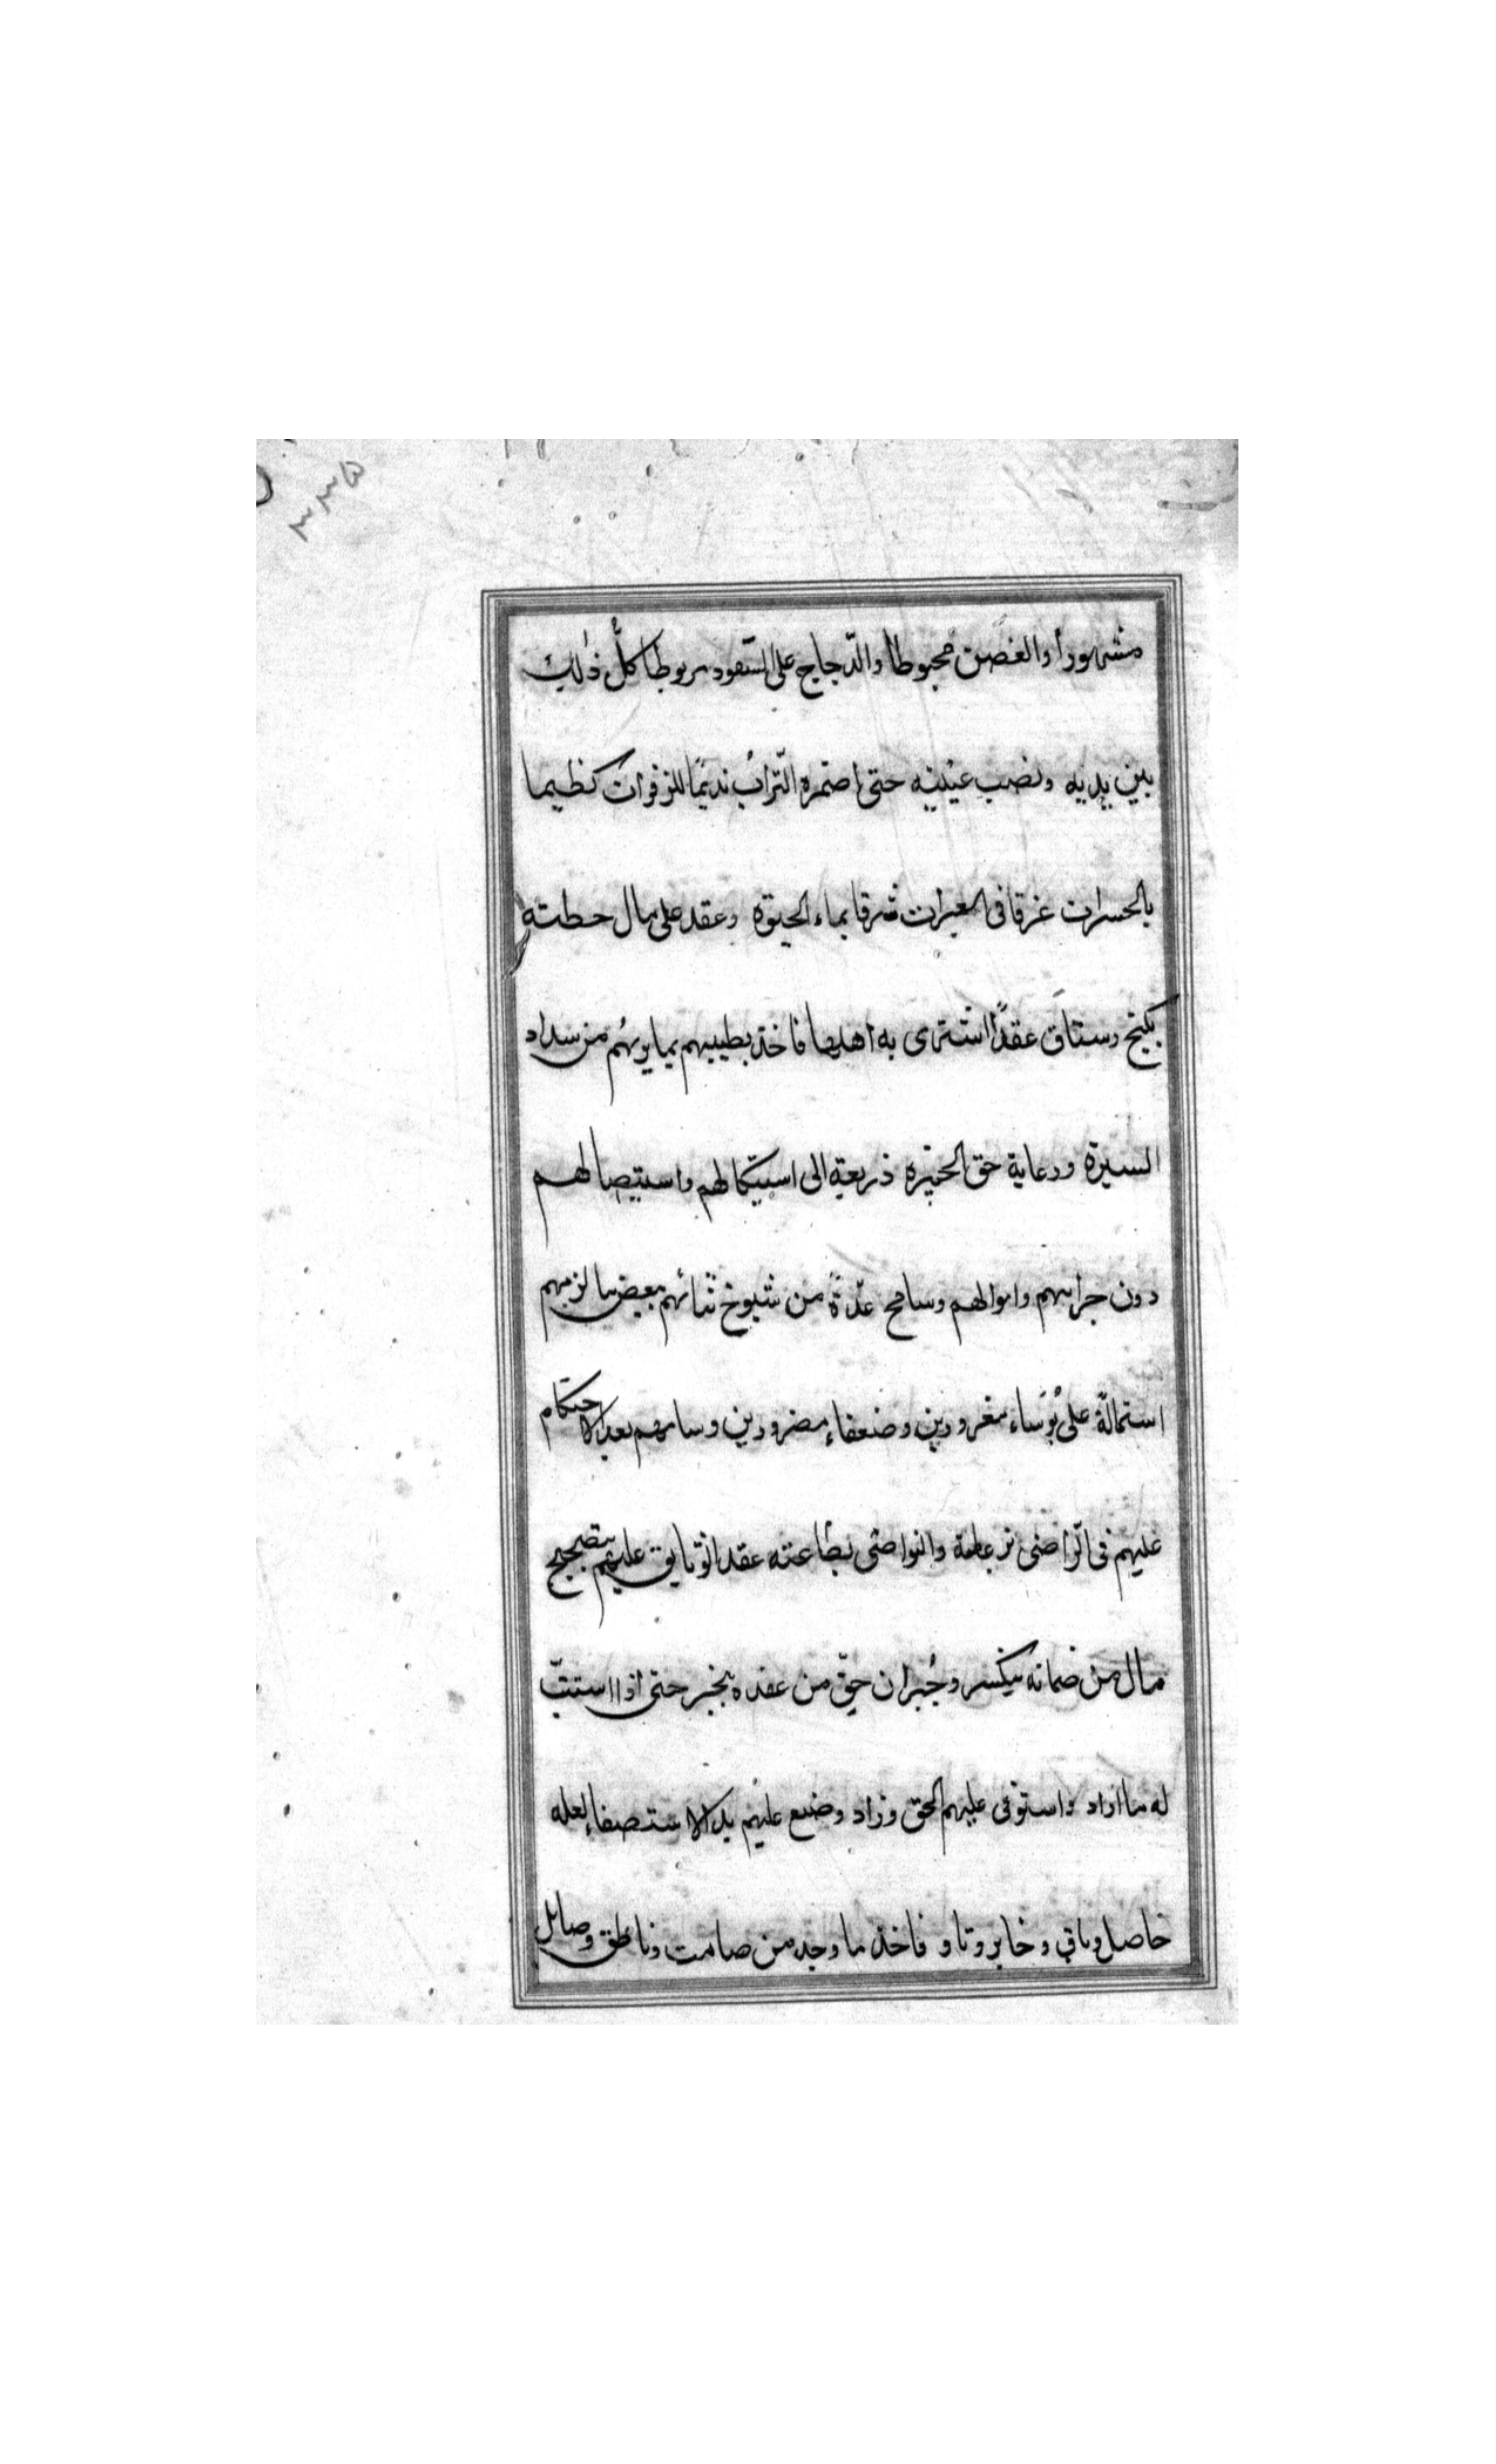 ٣٣٥
مشهوراً والغصن مخبوطا والدّجاج على السّفود مربوطا كلّ ذلك
بين يديه ونصب عينيه حتى اضمره التّرابُ نديمًا للزفرات كظيما
بالحسرات غرقا فى العبرات شرقا بماء الحيوة وعقد على مال حطته
بكنج رستاق عقداً اشترى به اهلها فاخذ بطيبهم بما يريهُم من سداد
السيرة ورعاية حق الجيرة ذريعة الى استيكالهم واستيصالهم
دون حرامهم واموالهم وسامح عدّة من شيوخ ثنائهم ببعض ما لزمهم
استمالةً على بُؤساء مغرورين وضعفاء مضرورين وسامهم بعد الاحتكام
عليهم فى الرّاضى بزعامة والنواصى بطاعته عقد الوثايق عليهم بتصحيح
مال من ضمانه ينكسر وجُبران حقّ من عقده بخبر حتى اذا استتبّ
له ما اراد واستوفى عليهم الحق وزاد وضع عليهم يد الاستصفاء لعله
حاصل وباقى وخابر وتاو فاخذ ما وجد من صامت وناطق وصايل